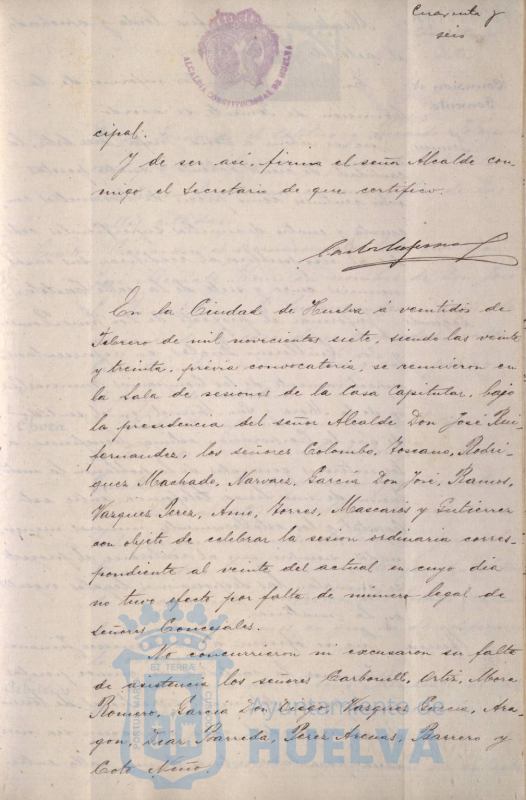 Cuarenta y
seis
ALCALDIA CONSTITUCIONAL DE HUELVA
cipal.
Y de ser asi, firma el señor Alcalde con-
migo el Secretario de que certifico.
En la Ciudad de Huelva á veintidos de
Febrero de mil novecientos siete, siendo las veinte
y treinta, previa convocatoria, se reunieron en
la Sala de sesiones de la Casa Capitular, bajo
la presidencia del señor Alcalde Don José
fernandez, los señores Colombo, Toscano, Rodri-
guez Machado, Narvaez, García Don José, Ramos,
Vazquez Perez, Amo, Torres, Mascarós y Gutierrez
con objeto de celebrar la sesion ordinaria corres-
pondiente al veinte del actual en cuyo dia
no tuvo efecto por falta de número legal de
señores Concejales.
No concurrieron ni excusaron su falta
de asistencia los señores Carbonell, Ortiz, Mora
Romero, García Don Diego, Vazquez Ara-
gon, Diaz Barreda, Perez Arenas, Barrero y
Coto Niño.
ET TERRÆ
PORTUS MARIS
CUSTODIA
Ayuntamiento de
HUELVA